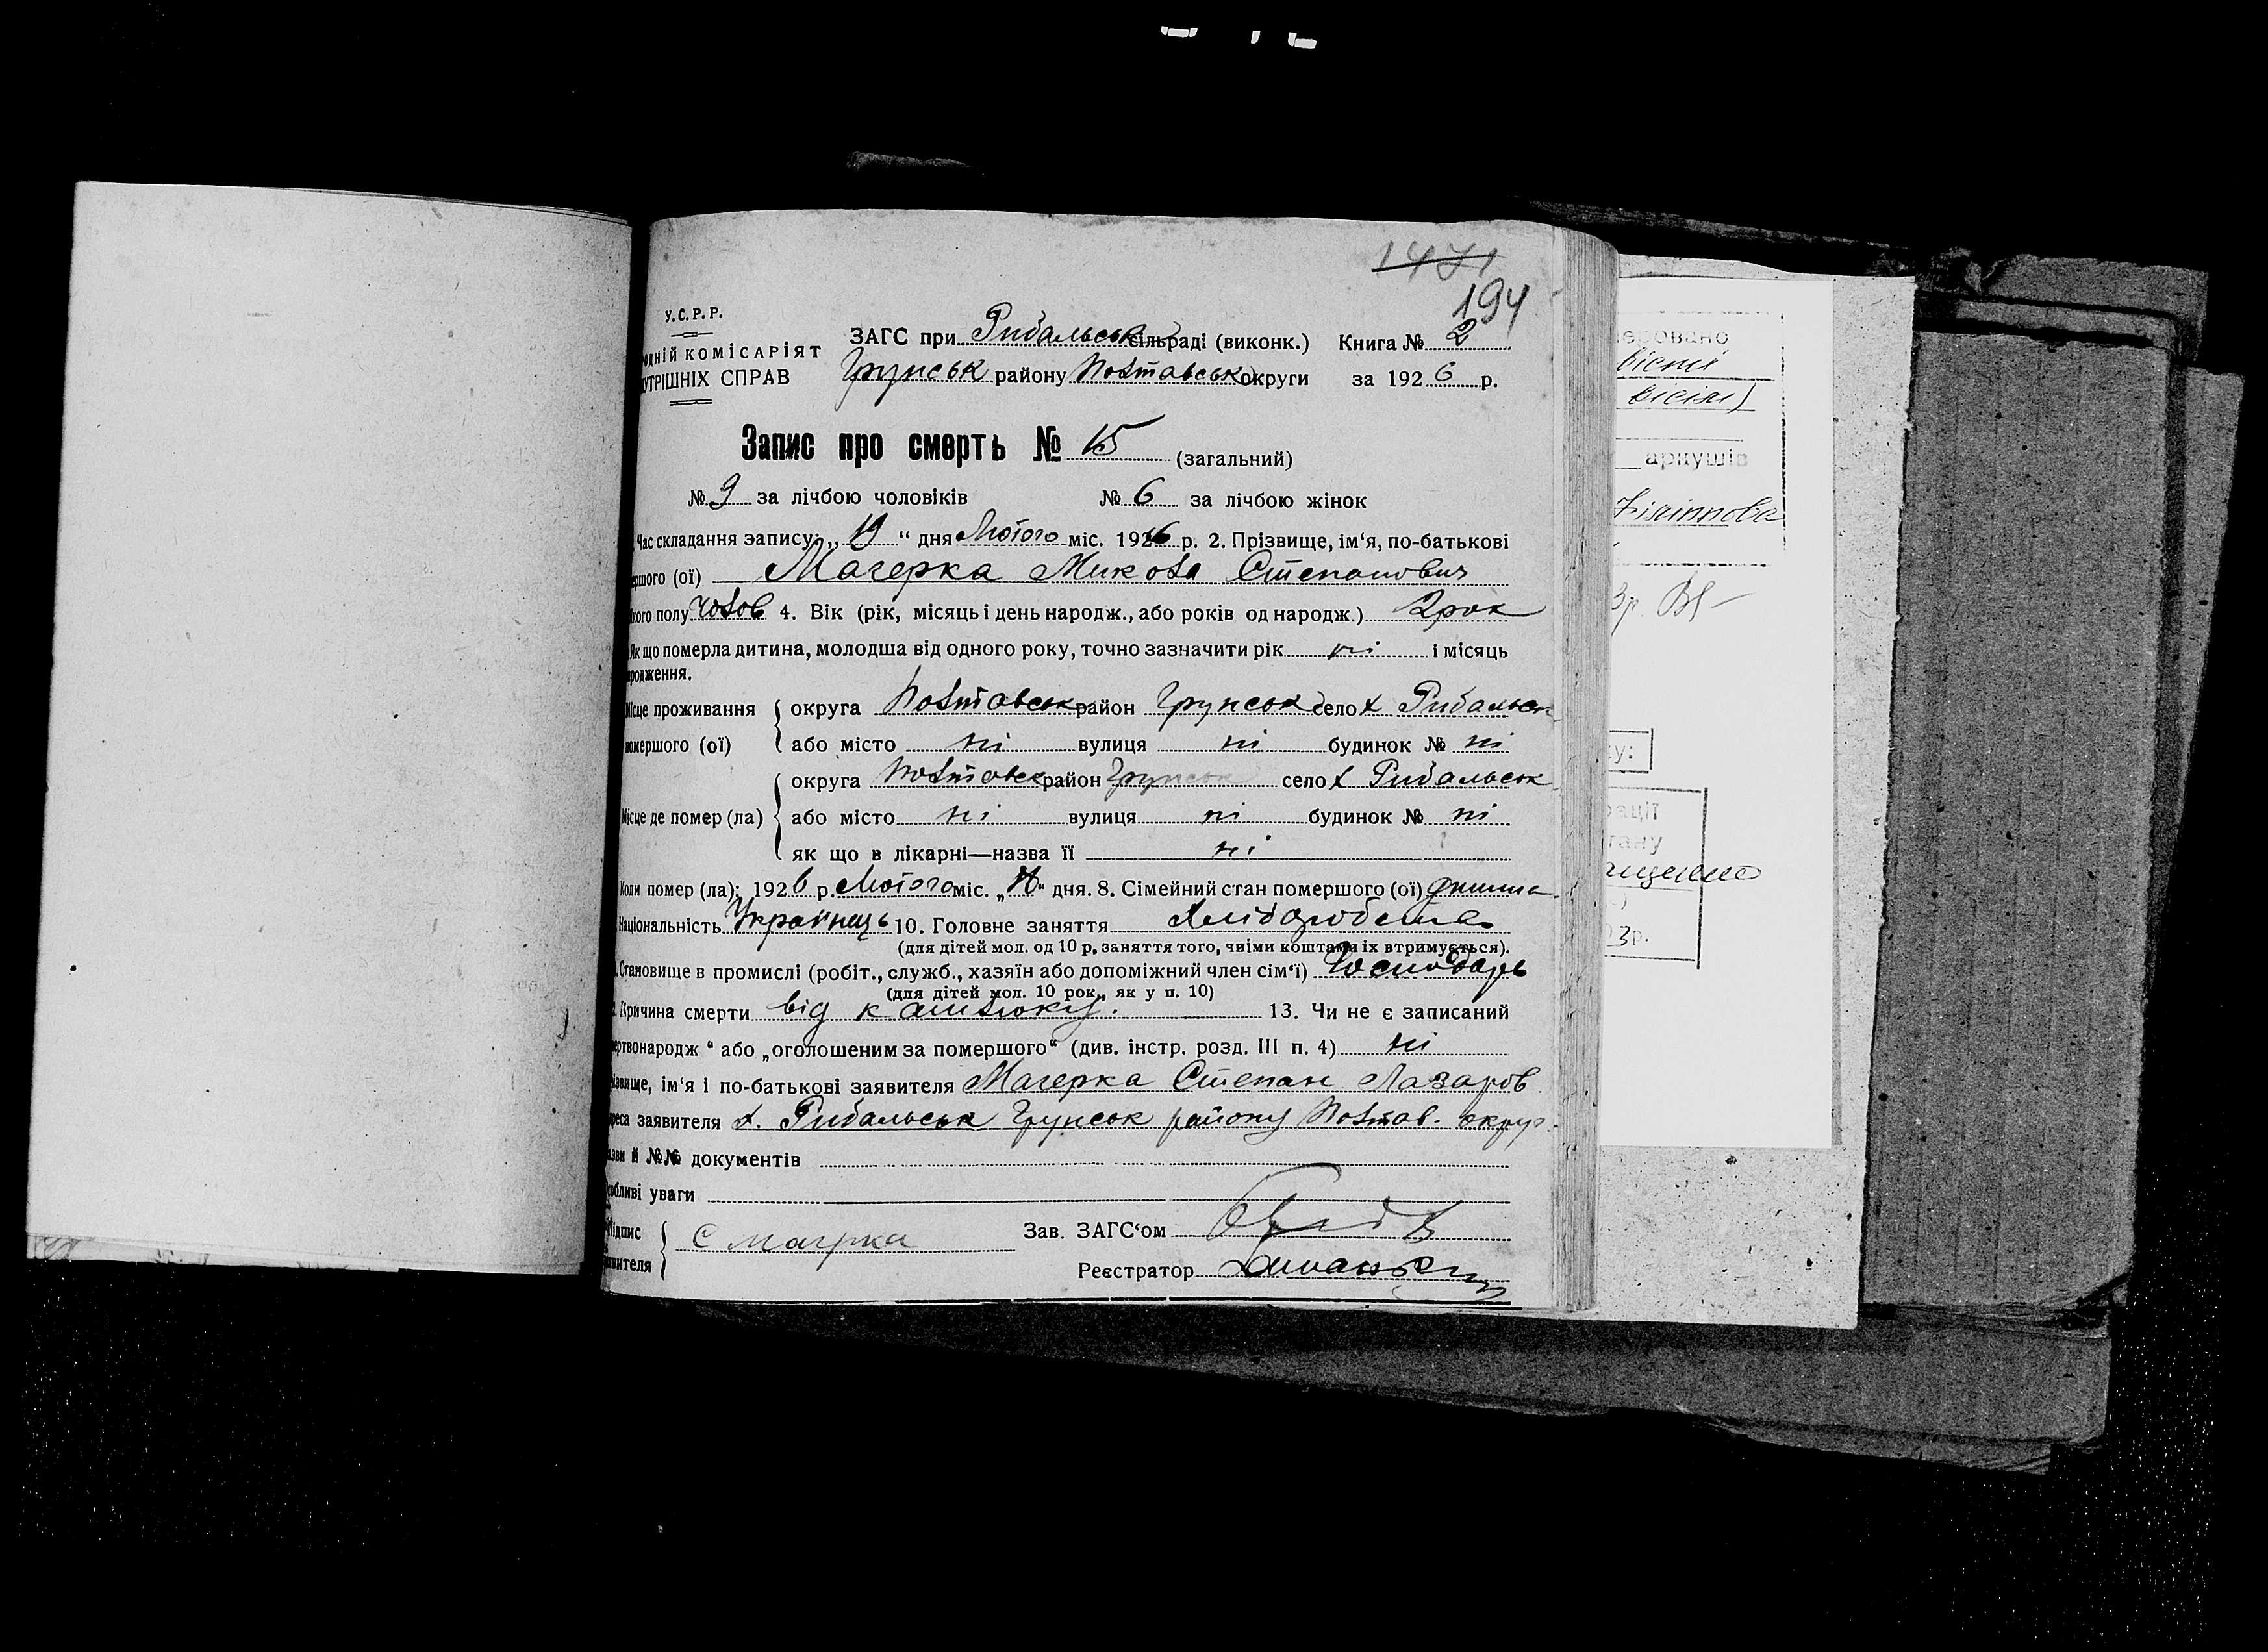 1471
194
У.С.Р.Р.
ОДНІЙ КОМІСАРІЯТ
УТРІШНІХ СПРАВ
ЗАГС при Рибальськ сільраді (виконк.) Книга № 2
Грунськ району Полтавськ округи за 1926 р.
Запис про смерть № 15 (загальний)
№ 9 за лічбою чоловіків № 6 за лічбою жінок
Час складання запису: „ “ дня Лютого міс. 1926 р. 2. Прізвище, ім‘я, по-батькові
ершого (ої) Магерка Микола Степанович
кого полу чолов 4. Вік (рік, місяць і день народж., або років од народж.) 2 рок
Як що померла дитина, молодша від одного року, точно зазначити рік ні і місяць
родження.
Місце проживання округа Полтавськ район Грунськ село х Рибальськ
помершого (ої) або місто ні вулиця ні будинок № ні
округа Полтавск район Грунськ село х Рибальськ
Місце де помер (ла) або місто ні вулиця ні будинок № ні
як що в лікарні—назва її ні
Коли помер (ла): 1926 р. Лютого міс. „ “ дня. 8. Сімейний стан помершого (ої)
Національність Українець 10. Головне заняття Хліборобства
(для дітей мол. од 10 р. заняття того, чиїми коштами їх втримується).
Становище в промислі (робіт., служб., хазяїн або допоміжний член сім‘ї) Господарь
(для дітей мол. 10 рок., як у п. 10)
Причина смерти від кашлюку. 13. Чи не є записаний
ертвонародж “ або „оголошеним за помершого“ (див. інстр. розд. III п. 4) ні
ізвище, ім‘я і по-батькові заявителя Магерка Степан Лазаров
реса заявителя х. Рибальськ Грунськ району Полтав. округ.
азви й №№ документів
собливі уваги
Підпис С Магрка Зав. ЗАГС‘ом
явителя Реєстратор
вісті
аркушів
Філіппова
3р.
у:
ації
тану
3р.